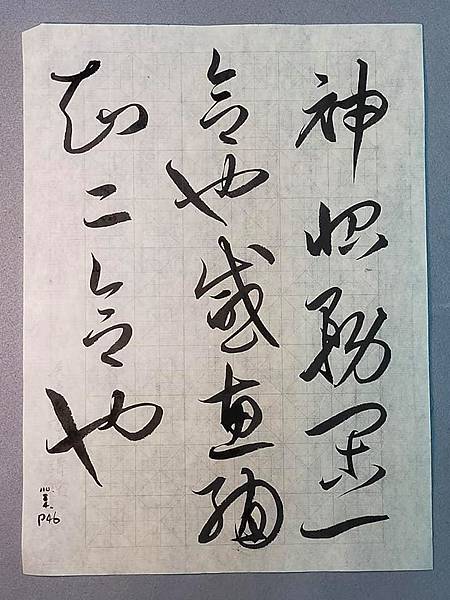 神怡務閑一
合也感惠徇
知二合也
P46